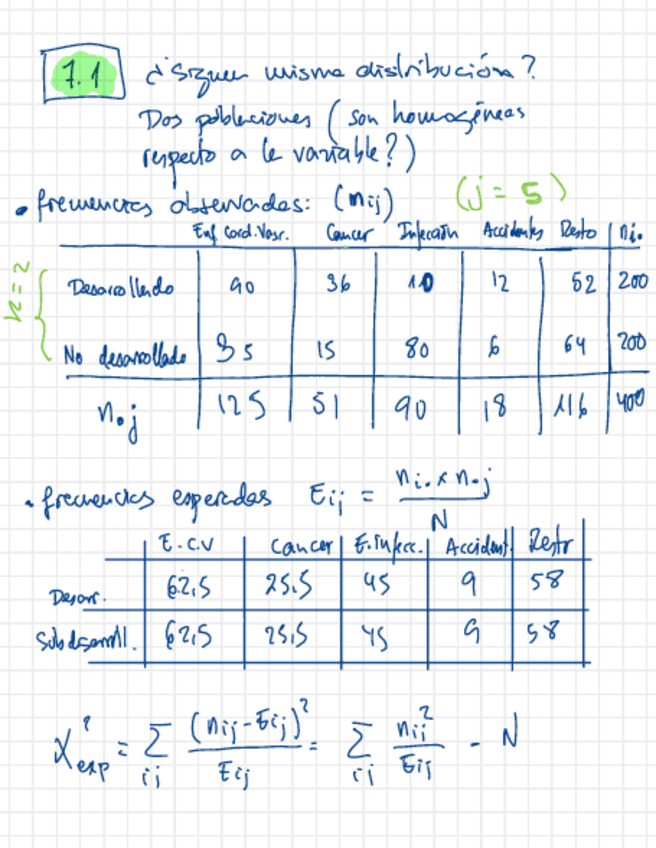 7.1 ¿Siguen misma distribución?
Dos poblaciones (son homogéneas
respecto a la variable?)
• frecuencias observadas: (nij) (j = 5)
Enf. Card. Vasc. Cancer Infección Accidentes Resto ni.
k=2
Desarrollado 90 36 10 12 52 200
No desarrollado 35 15 80 6 64 200
n.j 125 51 90 18 116 400
• frecuencias esperadas Eij = ni. x n.j / N
E.C.V Cancer E. Infecc. Accident. Resto
Desarr. 62,5 25,5 45 9 58
Subdesarroll. 62,5 25,5 45 9 58
X²exp = Σij (nij - Eij)² / Eij = Σij nij² / Eij - N